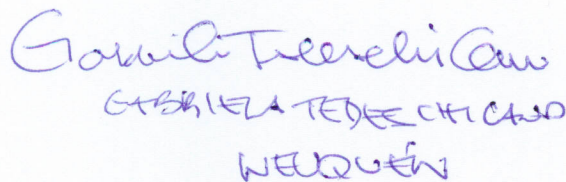 Gabriela Tedeschi Cano
GABRIELA TEDESCHI CANO
NEUQUÉN